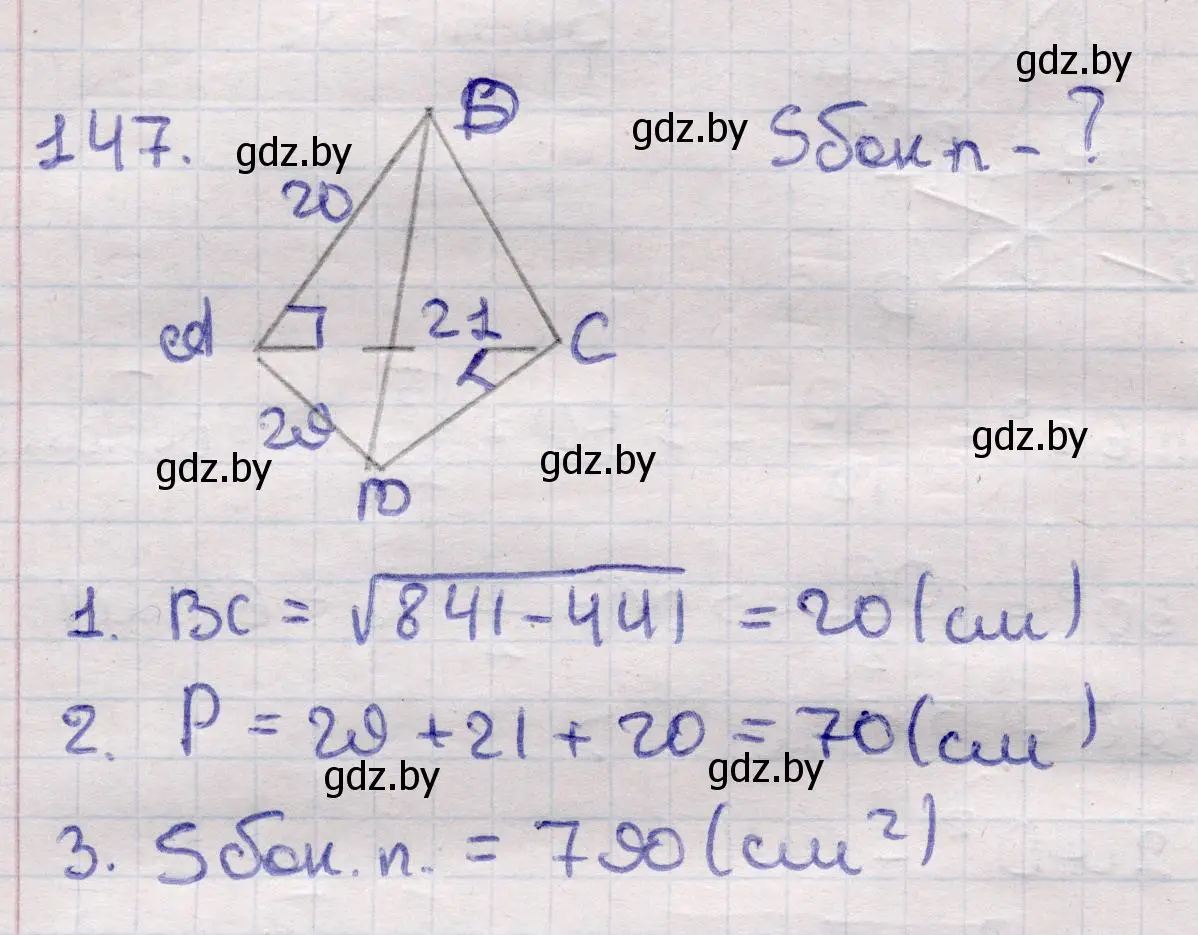 147.
gdz.by
gdz.by
gdz.by
Sбок п - ?
20
A
21
C
29
gdz.by
gdz.by
gdz.by
1. BC = √841-441 = 20 (см)
2. P = 29 + 21 + 20 = 70 (см)
gdz.by
gdz.by
3. Sбок. п. = 790 (см²)